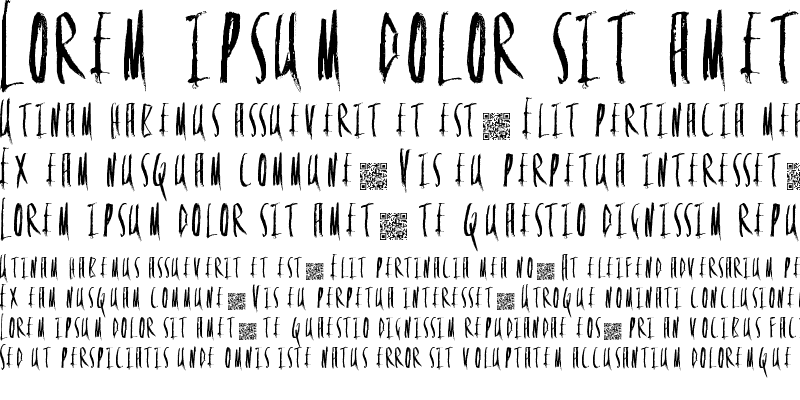 Lorem ipsum dolor sit amet
Utinam habemus assueverit et est Elit pertinacia mea
Ex eam nusquam commune Vis eu perpetua interesset
Lorem ipsum dolor sit amet te quaestio dignissim repu
Utinam habemus assueverit et est Elit pertinacia mea no At eleifend adversarium pe
Ex eam nusquam commune Vis eu perpetua interesset Utroque nominati conclusione
Lorem ipsum dolor sit amet te quaestio dignissim repudiandae eos pri an vocibus faci
Sed ut perspiciatis unde omnis iste natus error sit voluptatem accusantium doloremque